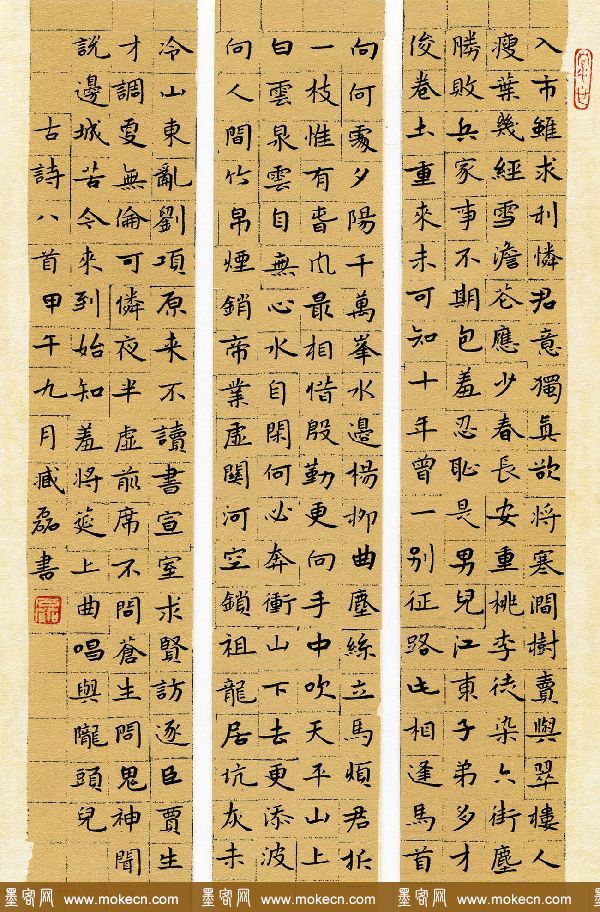 入市雖求利憐君意獨真欲將寒澗樹賣與翠樓人
瘦葉幾經雪澹花應少春長安重桃李徒染六街塵
勝敗兵家事不期包羞忍恥是男兒江東子弟多才
俊卷土重来未可知十年曾一別征路此相逢馬首
向何處夕陽千萬峯水邊楊柳曲塵絲立馬煩君折
一枝惟有春風最相惜殷勤更向手中吹天平山上
白雲泉雲自無心水自閑何必奔衝山下去更添波
向人間竹帛煙銷帝業虛關河空鎖祖龍居坑灰未
冷山東亂劉項原来不讀書宣室求賢訪逐臣賈生
才調更無倫可憐夜半虛前席不問蒼生問鬼神聞
說邊城苦令来到始知羞將筵上曲唱與隴頭兒
古詩八首甲午九月臧磊書
墨客网 www.mokecn.com 墨客网 www.mokecn.com 墨客网 www.mokecn.com